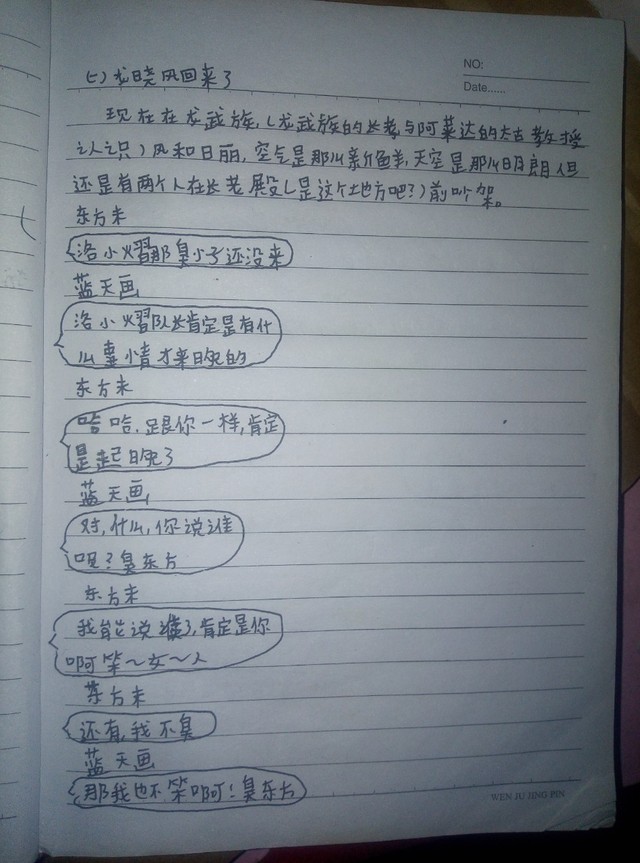 NO:
Date......
(七)龙晓风回来了
现在在龙武族,(龙武族的长老与阿莱达的太古教授
之人之只)风和日丽,空气是那么新鱼羊,天空是那么明朗但
还是有两个人在长老殿(是这个地方吧?)前吵架。
东方末
洛小熠那臭小子还没来
蓝天画
洛小熠队长肯定是有什
么事情才来晚的
东方末
哈哈.跟你一样,肯定
是起晚了
蓝天画
对,什么,你说谁
呗?臭东方
东方末
我能说谁了,肯定是你
啊笨~女~人
东方末
还有,我不臭
蓝天画
那我也不笨啊!臭东方
WEN JU JING PIN